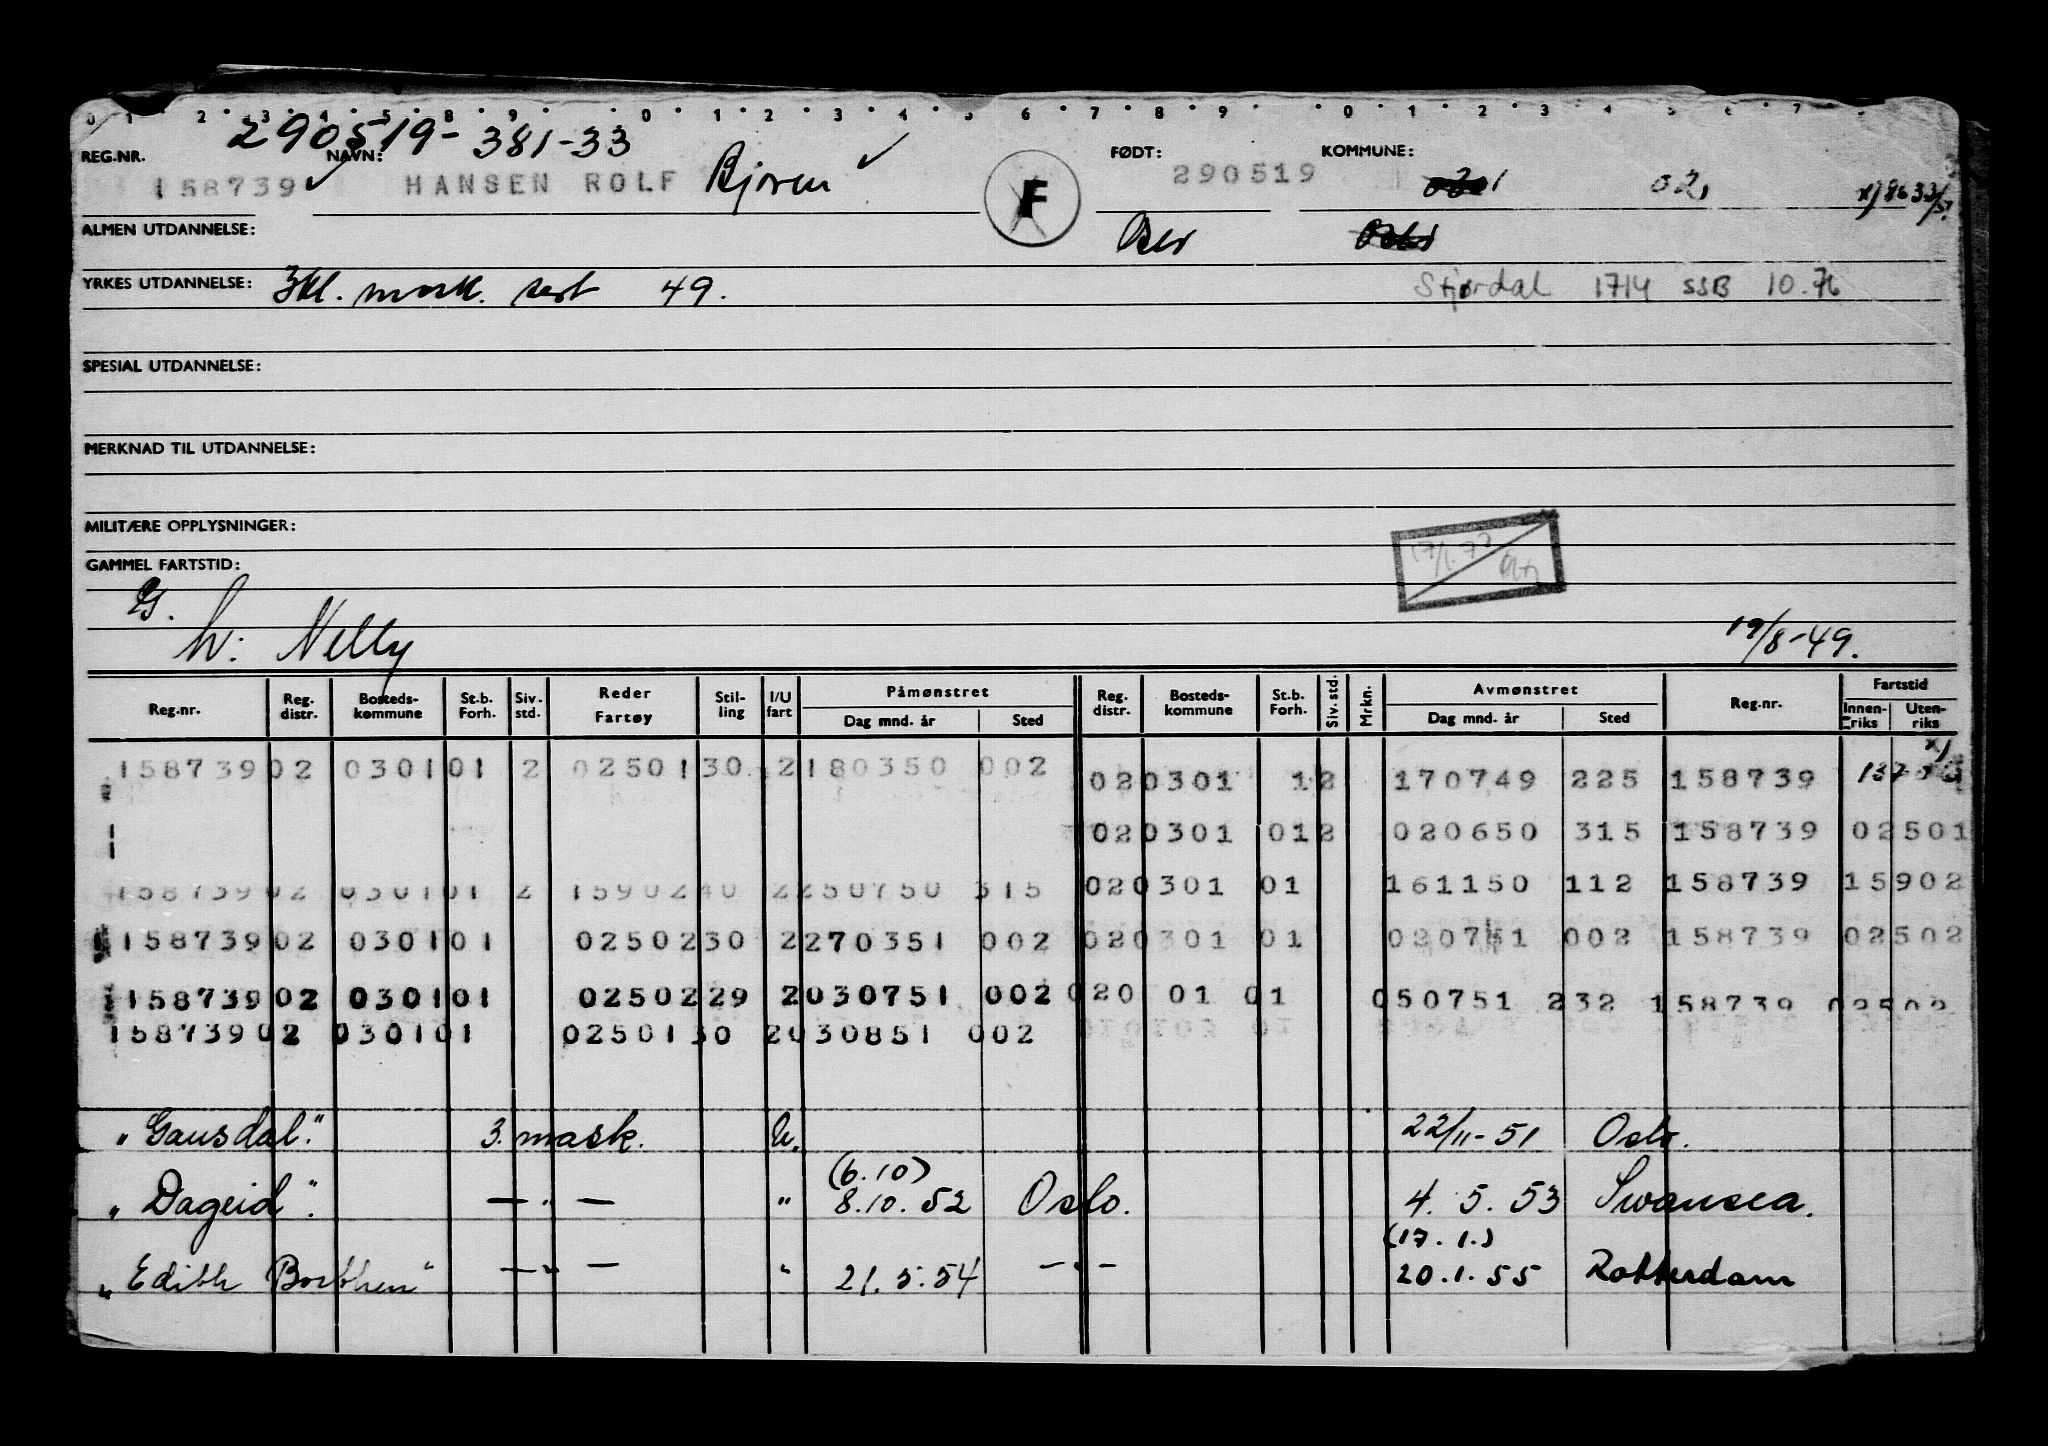 0 1 2 3 4 5 8 9 0 1 2 3 4 5 6 7 8 9 0 1 2 3 4 5 6 7
290519-381-33
REG.NR. NAVN: FØDT: KOMMUNE:
158739 HANSEN ROLF Bjørn F 290519 02,
ALMEN UTDANNELSE: Oslo
YRKES UTDANNELSE: 3kl. mask. sert 49. Stjørdal 1714 SSB 10.76
SPESIAL UTDANNELSE:
MERKNAD TIL UTDANNELSE:
MILITÆRE OPPLYSNINGER:
GAMMEL FARTSTID:
G.
h: Nelly 19/8-49.
Reg.nr. Reg. distr. Bosteds-kommune St.b. Forh. Siv. std. Reder Fartøy Stil-ling I/U fart Påmønstret Dag mnd. år Sted Reg. distr. Bosteds-kommune St.b. Forh. Siv. std. Mrkn. Avmønstret Dag mnd. år Sted Reg.nr. Fartstid Innen-riks Uten-riks
158739 02 0301 01 2 02501 30 2 180350 002 02 0301 1 2 170749 225 158739
02 0301 01 2 020650 315 158739 02501
158739 02 0301 01 2 15902 40 2 250750 315 02 0301 01 161150 112 158739 15902
158739 02 0301 01 02502 30 2 270351 002 02 0301 01 020751 002 158739 02502
158739 02 0301 01 02502 29 2 030751 002 020 01 01 050751 232 158739 02502
158739 02 0301 01 02501 30 2 030851 002
"Gausdal" 3. mask. U. 22/11-51 Oslo.
(6.10)
"Dageid" — " — " 8.10.52 Oslo. 4.5.53 Swansea.
(17.1.)
"Edith Borthen" — " — " 21.5.54 — " — 20.1.55 Rotterdam